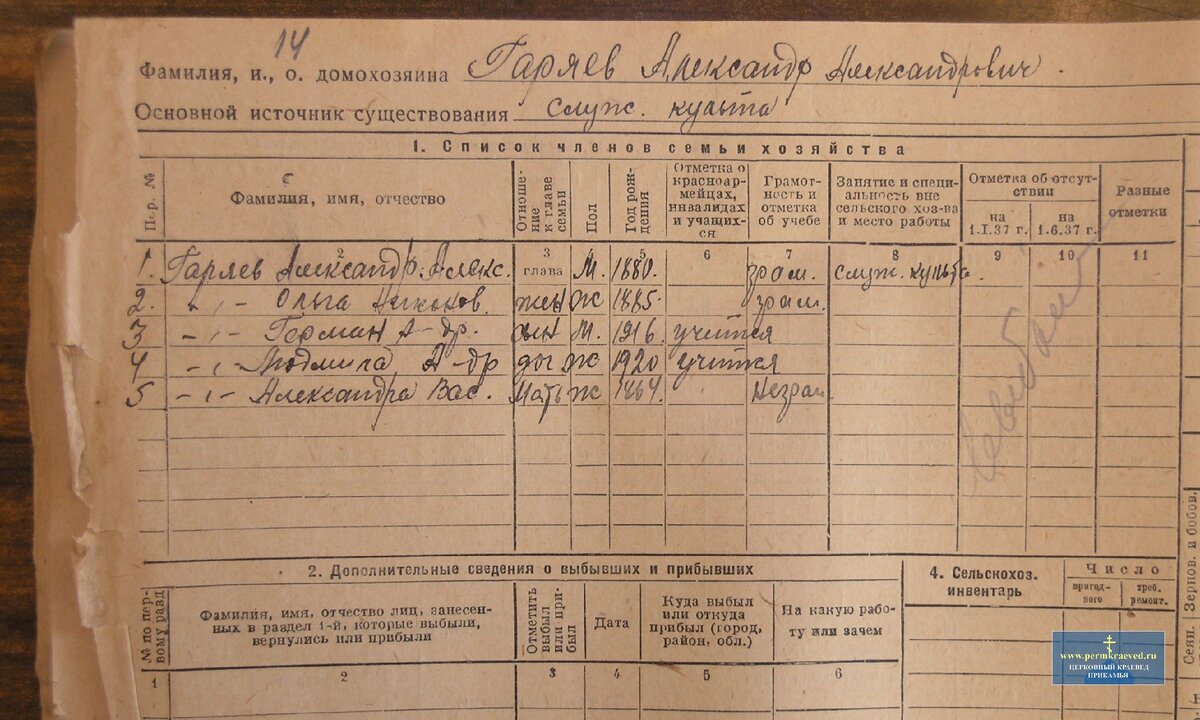 14
Фамилия, и., о. домохозяина Гаряев Александр Александрович.
Основной источник существования служ. культа
1. Список членов семьи хозяйства
Пор. №
Фамилия, имя, отчество
Отноше-
ние
к главе
семьи
Пол
Год рож-
дения
Отметка о
красноар-
мейцах,
инвалидах
и учащих-
ся
Грамот-
ность и
отметка
об учебе
Занятие и специ-
альность вне
сельского хоз-ва
и место работы
Отметка об отсут-
ствии
на
1.I.37 г.
на
1.6.37 г.
Разные
отметки
2 3 5 6 7 8 9 10 11
1. Гаряев Александр Алекс. глава М. 1880. грам. служ. культа
2. -„- Ольга Никонов. жен ж 1885. грам.
3 -„- Герман А-др. сын М. 1916 учится
4 -„- Людмила А-др доч ж 1920 учится
5 -„- Александра Вас. Мать ж 1864. Неграм.
2. Дополнительные сведения о выбывших и прибывших
№ по пер-
вому разд.
Фамилия, имя, отчество лиц, занесен-
ных в раздел 1-й, которые выбыли,
вернулись или прибыли
Отметить
выбыл
или при-
был
Дата
Куда выбыл
или откуда
прибыл (город,
район, обл.)
На какую рабо-
ту или зачем
1 2 3 4 5 6
4. Сельскохоз.
инвентарь
Число
пригод-
ного
треб.
ремонт.
Сеян. Зернов. и бобов.
www.permkraeved.ru
ЦЕРКОВНЫЙ КРАЕВЕД
ПРИКАМЬЯ